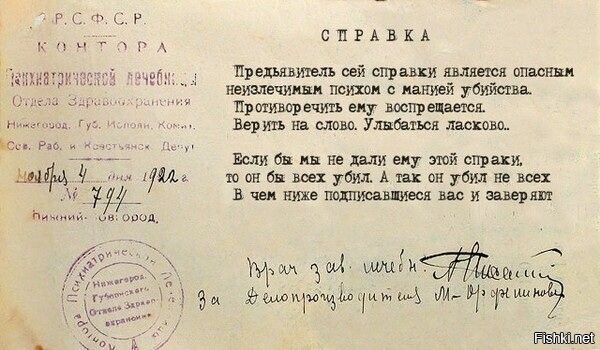 Р.С.Ф.С.Р.
КОНТОРА
Психиатрической лечебн
Отдела Здравоохранения
Нижегород. Губ. Исполн. Комит.
Сов. Раб. и Крестьянск. Депут
Ноября 4 дня 1922 г.
№ 794
Нижний-Новгород.
СПРАВКА
Предьявитель сей справки является опасным
неизлечимым психом с манией убийства.
Противоречить ему воспрещается.
Верить на слово. Улыбаться ласково..
Если бы мы не дали ему этой спраки,
то он бы всех убил. А так он убил не всех
В чем ниже подписавшиеся вас и заверяют
Врач зав. лечебн.
За Делопроизводителя
Контора Психиатрической
Нижегород.
Губернского
Отдела Здраво-
охранения
Fishki.net